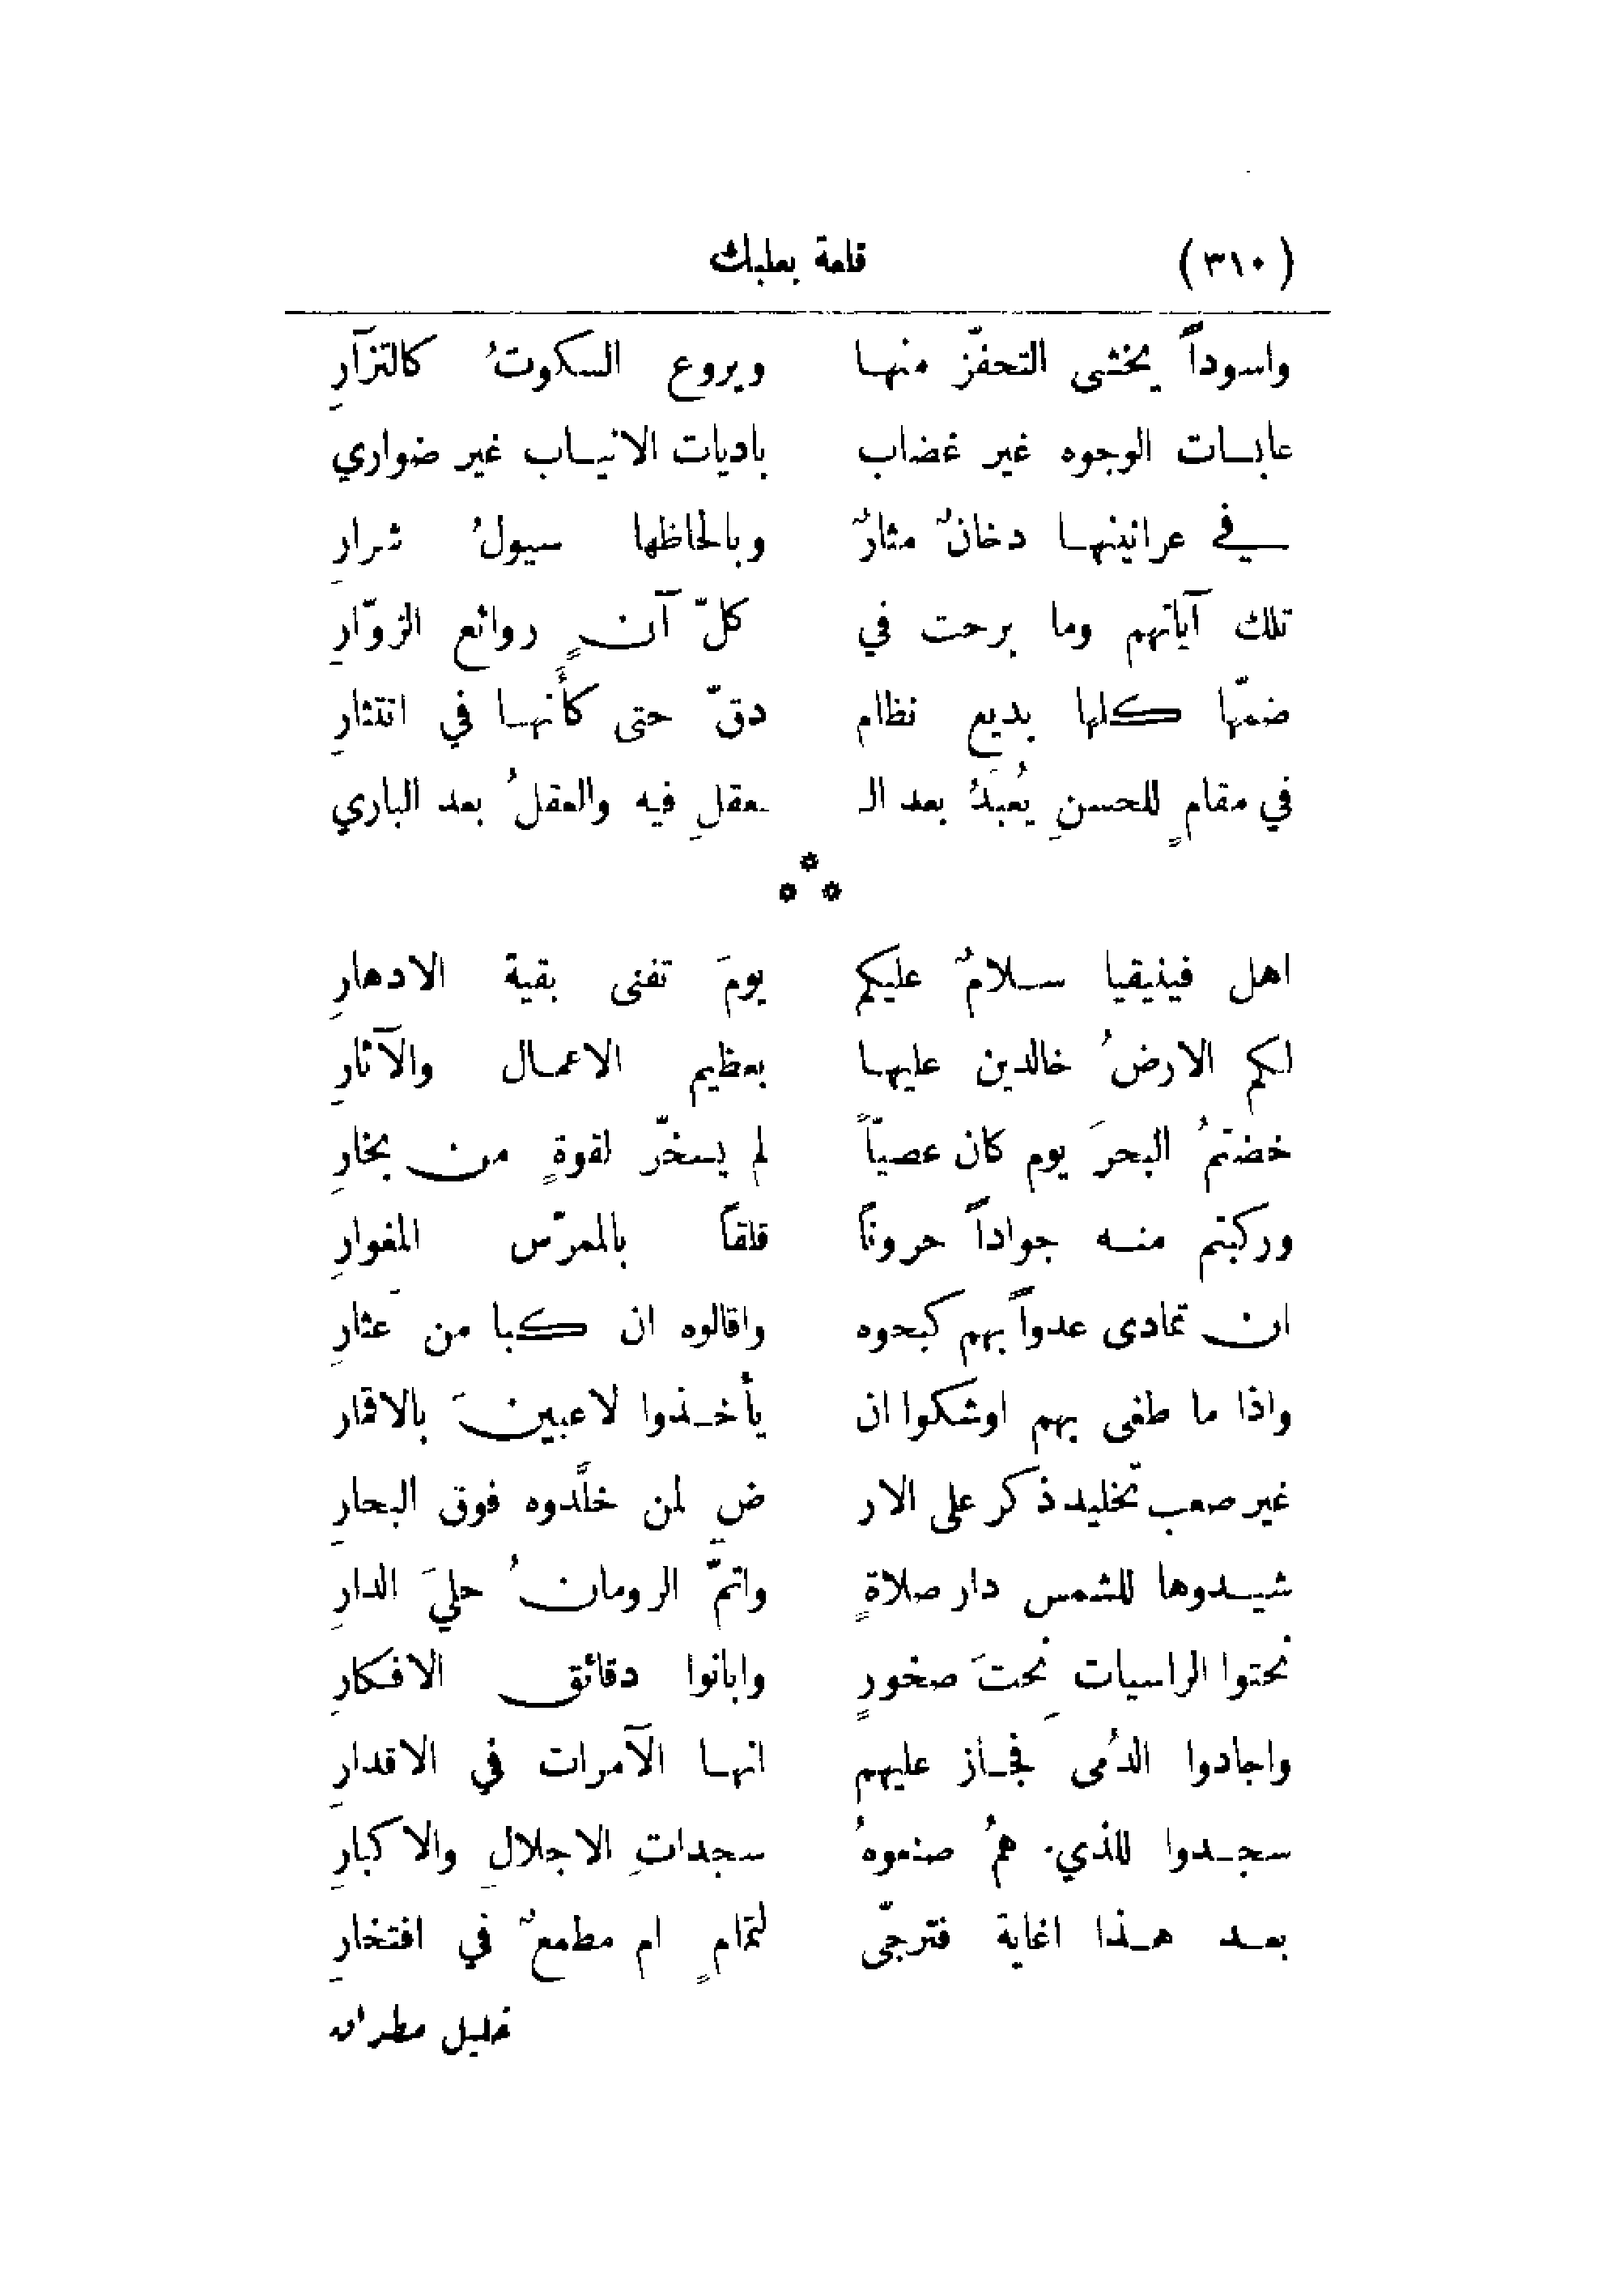 (٣١٠) قلعة بعلبك
واسوداً يخشى التحفّز منها ويروع السكوتُ كالتزآرِ
عابسات الوجوه غير غضاب باديات الانياب غير ضواري
في عرانينها دخانٌ مثارٌ وبالحاظها سيولُ شرارِ
تلك آياتهم وما برحت في كلّ آنٍ روائع الزوّارِ
ضمّها كلها بديع نظام دقّ حتى كأنها في انتثارِ
في مقامٍ للحسنِ يُعبَدُ بعد الـ ـعقلِ فيه والعقلُ بعد الباري
***
اهل فينيقيا سلامٌ عليكم يومَ تفنى بقية الادهارِ
لكم الارضُ خالدين عليها بعظيم الاعمال والآثارِ
خضتمُ البحرَ يوم كان عصيّاً لم يسخّر لقوةٍ من بخارِ
وركبتم منه جواداً حروناً قلقاً بالممرّس المغوارِ
ان تمادى عدواً بهم كبحوه واقالوه ان كبا من عثارِ
واذا ما طغى بهم اوشكوا ان يأخذوا لاعبينَ بالاقمار
غير صعب تخليد ذكر على الار ضِ لمن خلَّدوه فوق البحارِ
شيدوها للشمس دار صلاةٍ واتمّ الرومانُ حليَ الدارِ
نحتوا الراسيات نحتَ صخورٍ وابانوا دقائق الافكارِ
واجادوا الدُمى فجاز عليهمِ انها الآمرات في الاقدارِ
سجدوا للذي همُ صنعوهُ سجداتِ الاجلالِ والاكبارِ
بعد هذا اغاية فترجّى لتمامٍ ام مطمعٌ في افتخارِ
خليل مطران